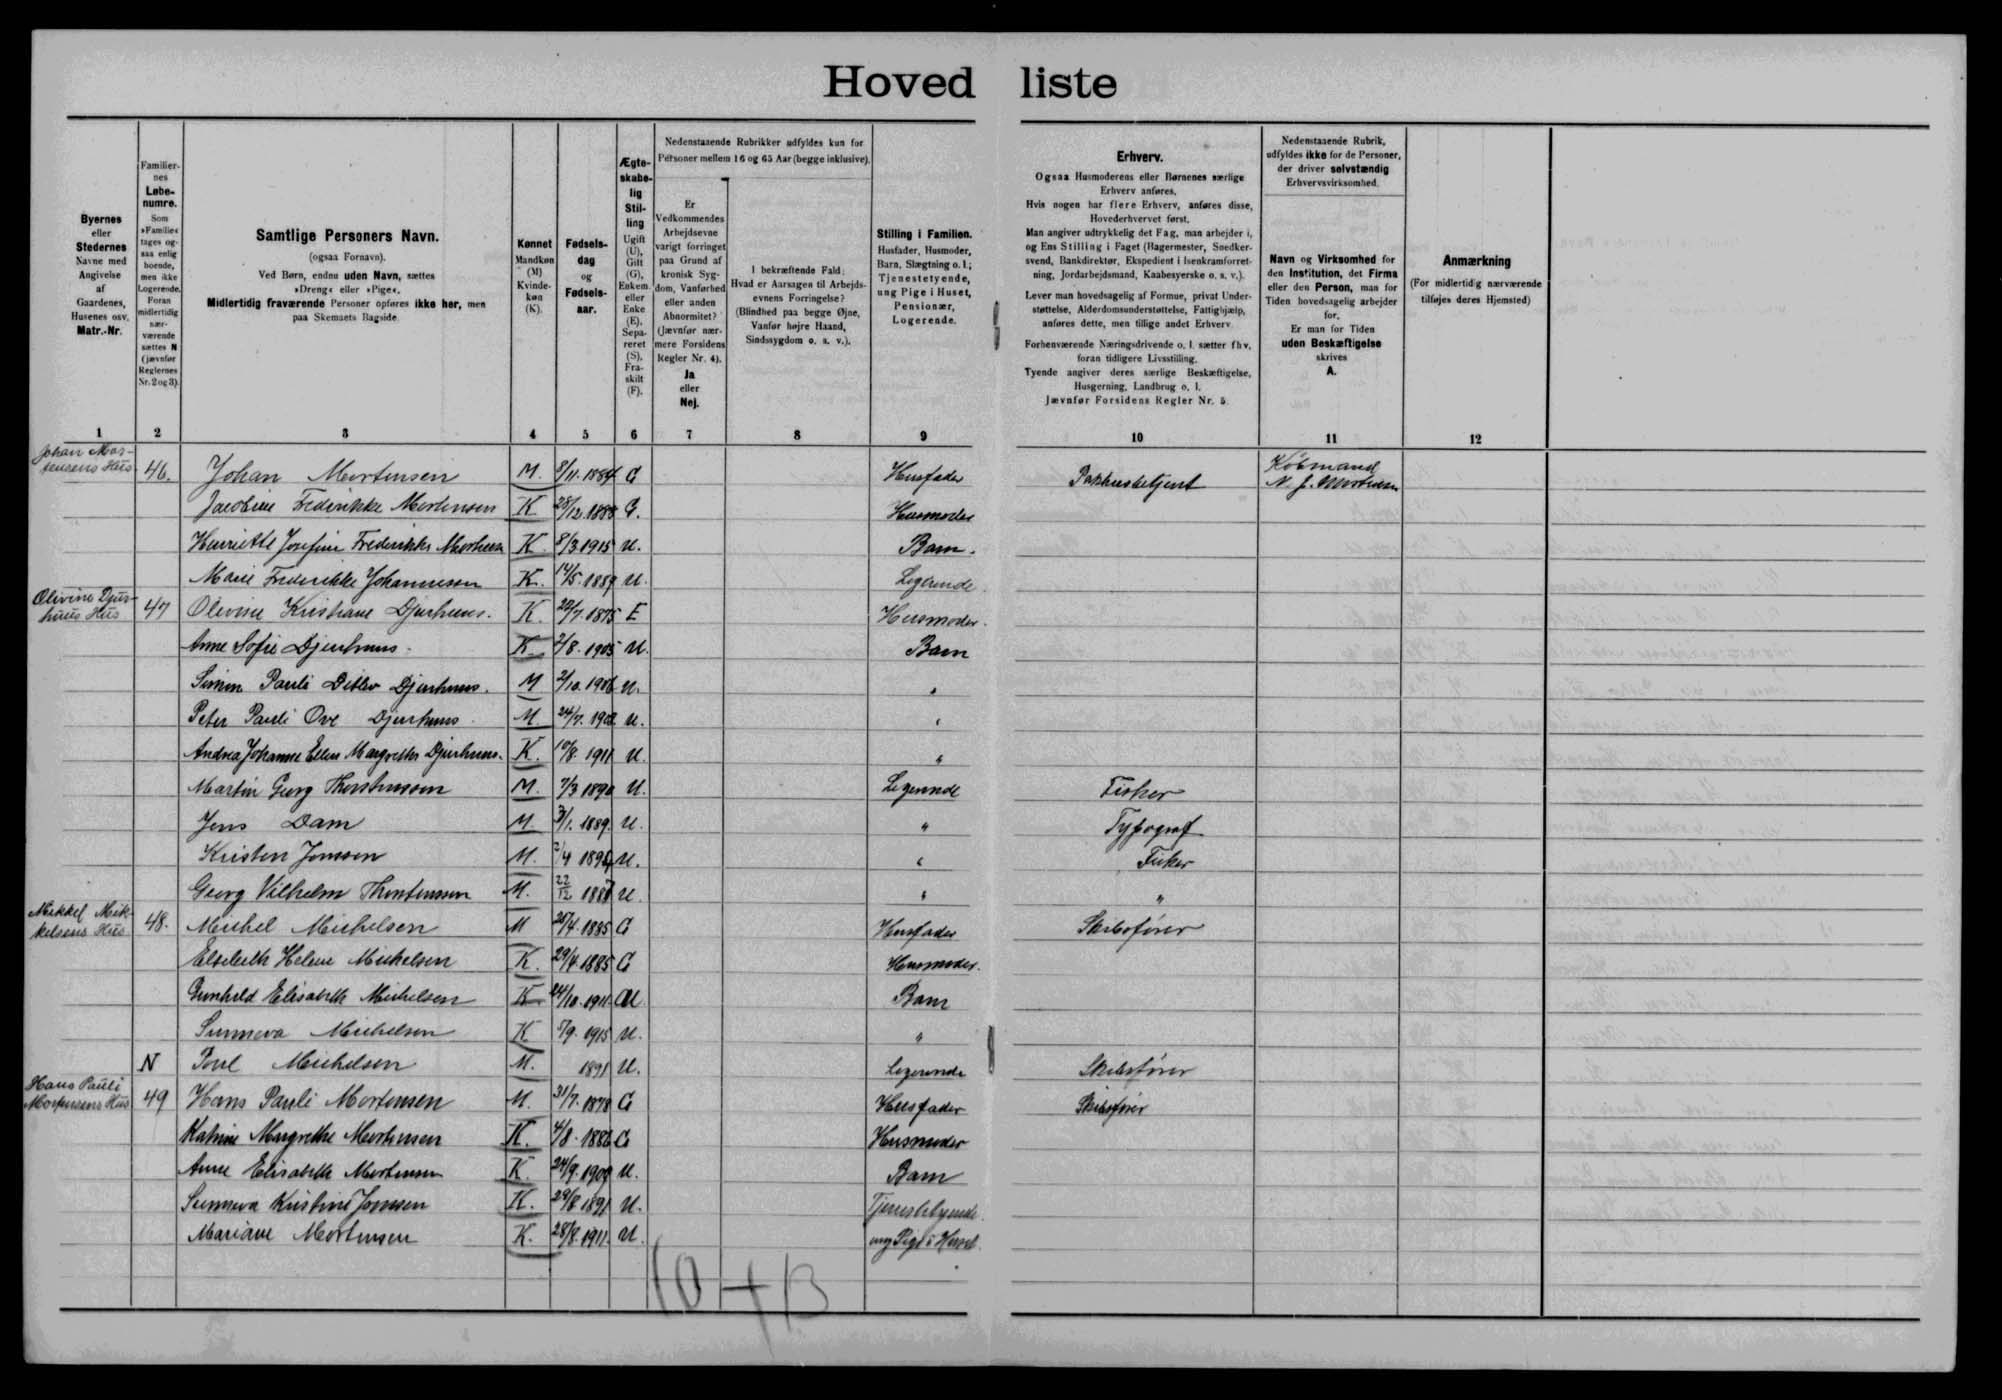 Hovedliste
Byernes eller Stedernes Navne med Angivelse af Gaardenes, Husenes osv. Matr.-Nr.
Familiernes Løbenumre. Som »Familie« tages ogsaa enlig boende, men ikke Logerende. Foran midlertidig nærværende sættes N (jævnfør Reglernes Nr. 2 og 3).
Samtlige Personers Navn.
(ogsaa Fornavn).
Ved Børn, endnu uden Navn, sættes
»Dreng« eller »Pige«.
Midlertidig fraværende Personer opføres ikke her, men
paa Skemaets Bagside.
Kønnet Mandkøn (M) Kvindekøn (K).
Fødselsdag og Fødselsaar.
Ægteskabelig Stilling Ugift (U), Gift (G), Enkem. eller Enke (E), Separeret (S), Fraskilt (F).
Nedenstaaende Rubrikker udfyldes kun for
Personer mellem 16 og 65 Aar (begge inklusive).
Er Vedkommendes Arbejdsevne varigt forringet paa Grund af kronisk Sygdom, Vanførhed eller anden Abnormitet? (Jævnfør nærmere Forsidens Regler Nr. 4). Ja eller Nej.
I bekræftende Fald: Hvad er Aarsagen til Arbejdsevnens Forringelse? (Blindhed paa begge Øjne, Vanfør højre Haand, Sindssygdom o. s. v.).
Stilling i Familien. Husfader, Husmoder, Barn, Slægtning o. l.; Tjenestetyende, ung Pige i Huset, Pensionær, Logerende.
Erhverv.
Ogsaa Husmoderens eller Børnenes særlige
Erhverv anføres.
Hvis nogen har flere Erhverv, anføres disse,
Hovederhvervet først.
Man angiver udtrykkelig det Fag, man arbejder i,
og Ens Stilling i Faget (Bagermester, Snedkersvend, Bankdirektør, Ekspedient i Isenkramforretning, Jordarbejdsmand, Kaabesyerske o. s. v.).
Lever man hovedsagelig af Formue, privat Understøttelse, Alderdomsunderstøttelse, Fattighjælp,
anføres dette, men tillige andet Erhverv.
Forhenværende Næringsdrivende o. l. sætter fhv.
foran tidligere Livsstilling.
Tyende angiver deres særlige Beskæftigelse,
Husgerning, Landbrug o. l.
Jævnfør Forsidens Regler Nr. 5.
Nedenstaaende Rubrik, udfyldes ikke for de Personer, der driver selvstændig Erhvervsvirksomhed.
Navn og Virksomhed for den Institution, det Firma eller den Person, man for Tiden hovedsagelig arbejder for.
Er man for Tiden uden Beskæftigelse skrives A.
Anmærkning
(For midlertidig nærværende
tilføjes deres Hjemsted)
1 2 3 4 5 6 7 8 9 10 11 12
Johan Mortensens Hus 46. Johan Mortensen M. 8/11. 1884 G Husfader Pakhusbetjent Købmand N. J. Mortensen
Jacobine Frederikke Mortensen K 28/12. 1888 G. Husmoder
Henriette Josefine Frederikke Mortensen K. 8/3 1915 U. Barn.
Marie Frederikke Johannesen K. 14/5. 1889 U. Logerende
Olivine Djurhuus Hus 47 Olivine Kristiane Djurhuus. K. 22/7. 1875 E Husmoder.
Anne Sofie Djurhuus. K. 2/8. 1905 U. Barn
Simon Pauli Ditlev Djurhuus. M 2/10. 1906 U. "
Peter Pauli Ove Djurhuus. M. 24/7. 1908 U. "
Andrea Johanne Ellen Margrethe Djurhuus. K. 10/8. 1911 U. "
Martin Georg Thorsteinsson M. 7/3 1890 U. Logerende Fisker
Jens Dam M. 3/1. 1889. U. " Typograf
Kristen Jonsson M. 2/4 U. " Fisker
Georg Vilhelm Thorsteinsson M. 22/12 U " "
Mikkel Mikkelsens Hus 48. Michel Michelsen M 25/4. 1885 G Husfader Skibsfører
Elsebeth Helene Michelsen K. 29/4. 1885 G Husmoder.
Gunhild Elisabeth Michelsen K 24/10. 1911 U Barn
Sunneva Michelsen K 5/9. 1915 U. "
N Poul Michelsen M. 1891 U. Logerende Skibsfører
Hans Pauli Mortensens Hus 49 Hans Pauli Mortensen M. 31/7. 1878 G Husfader Skibsfører
Katrine Margrethe Mortensen K. 4/8. 1882 G Husmoder
Anne Elisabeth Mortensen K. 24/9. 1909 U. Barn
Sunneva Kristine Jonsson K. 29/8 1891 U. Tjenestetyende.
Mariane Mortensen K. 28/8. 1911. U. ung Pige i Huset.
10 + 13